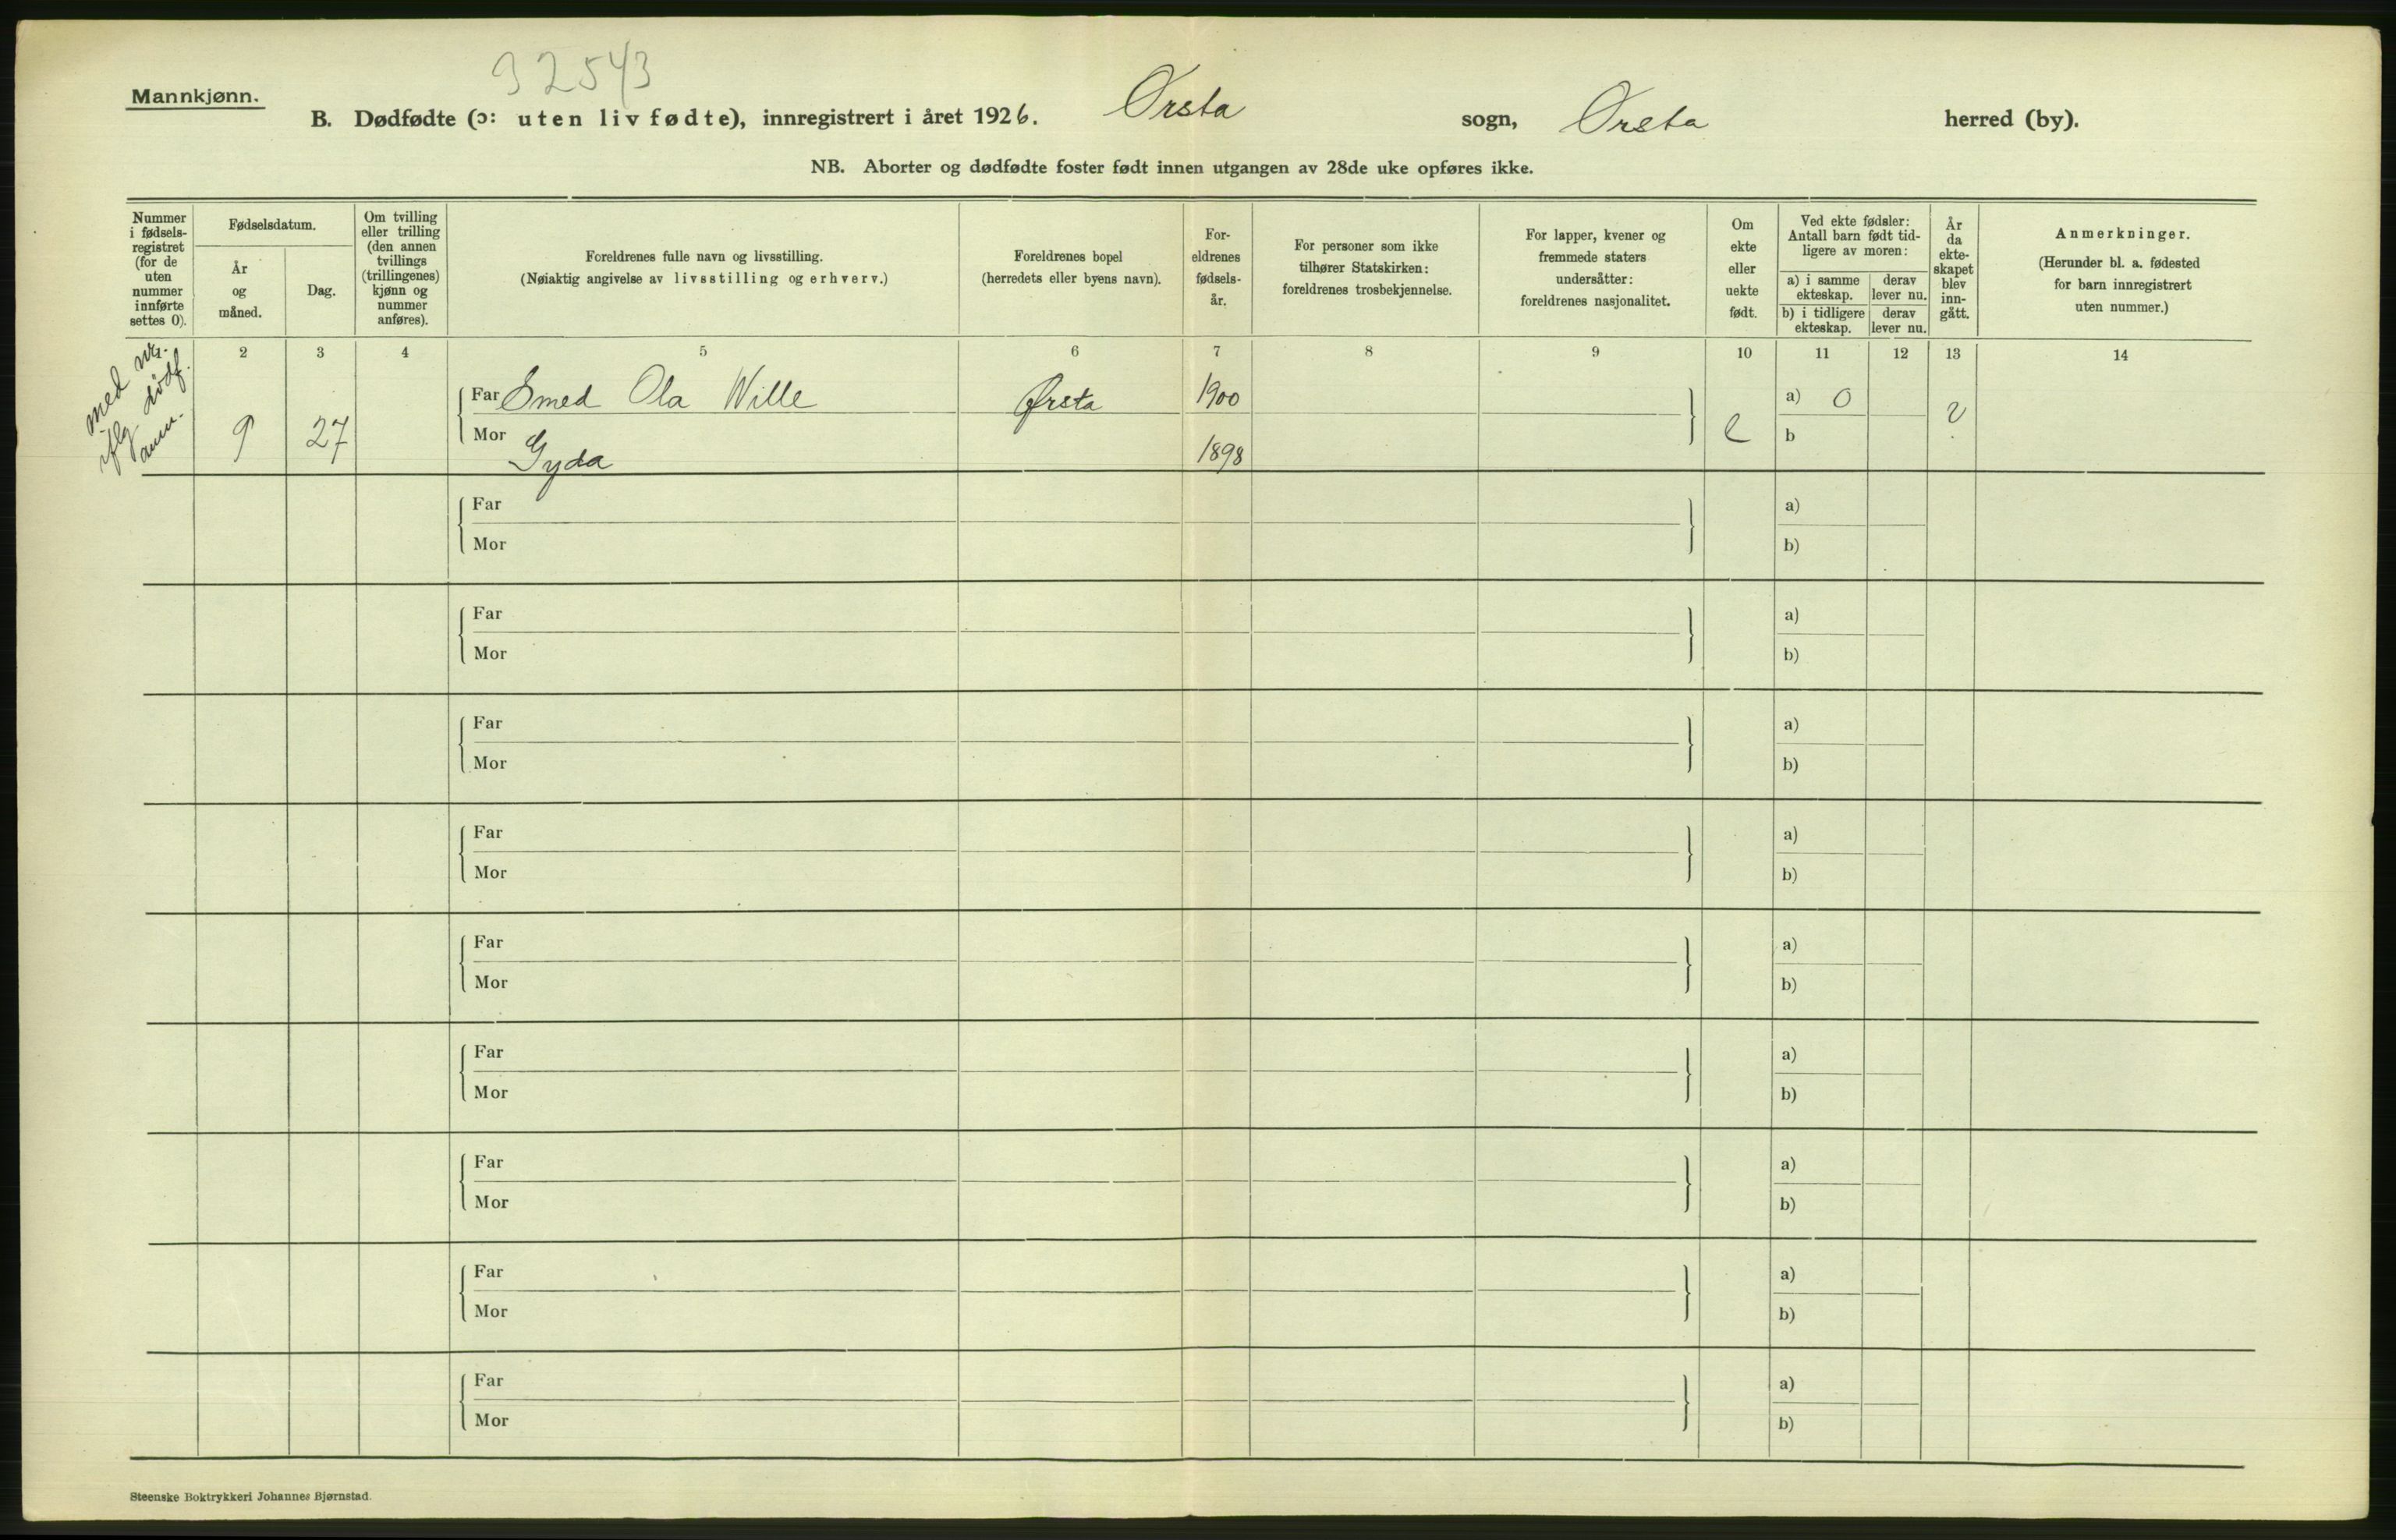 32543
Mannkjønn.
B. Dødfødte (ɔ: uten liv fødte), innregistrert i året 1926. Ørsta sogn, Ørsta herred (by).
NB. Aborter og dødfødte foster født innen utgangen av 28de uke opføres ikke.
Nummer i fødsels-registret (for de uten nummer innførte settes 0).
Fødselsdatum.
År og måned.
Dag.
Om tvilling eller trilling (den annen tvillings (trillingenes) kjønn og nummer anføres).
Foreldrenes fulle navn og livsstilling.
(Nøiaktig angivelse av livsstilling og erhverv.)
Foreldrenes bopel
(herredets eller byens navn).
For-eldrenes fødsels-år.
For personer som ikke tilhører Statskirken: foreldrenes trosbekjennelse.
For lapper, kvener og fremmede staters undersåtter: foreldrenes nasjonalitet.
Om ekte eller uekte født.
Ved ekte fødsler: Antall barn født tid-ligere av moren:
a) i samme ekteskap.
derav lever nu.
b) i tidligere ekteskap.
derav lever nu.
År da ekte-skapet blev inn-gått.
Anmerkninger.
(Herunder bl. a. fødested for barn innregistrert uten nummer.)
2 3 4 5 6 7 8 9 10 11 12 13 14
med nr.
iflg dødf.
anm.
9 27
Far Smed Ola Wille Ørsta 1900
Mor Gyda 1898
e
a) 0
b
?
Far a)
Mor b)
Far a)
Mor b)
Far a)
Mor b)
Far a)
Mor b)
Far a)
Mor b)
Far a)
Mor b)
Far a)
Mor b)
Far a)
Mor b)
Far a)
Mor b)
Steenske Boktrykkeri Johannes Bjørnstad.